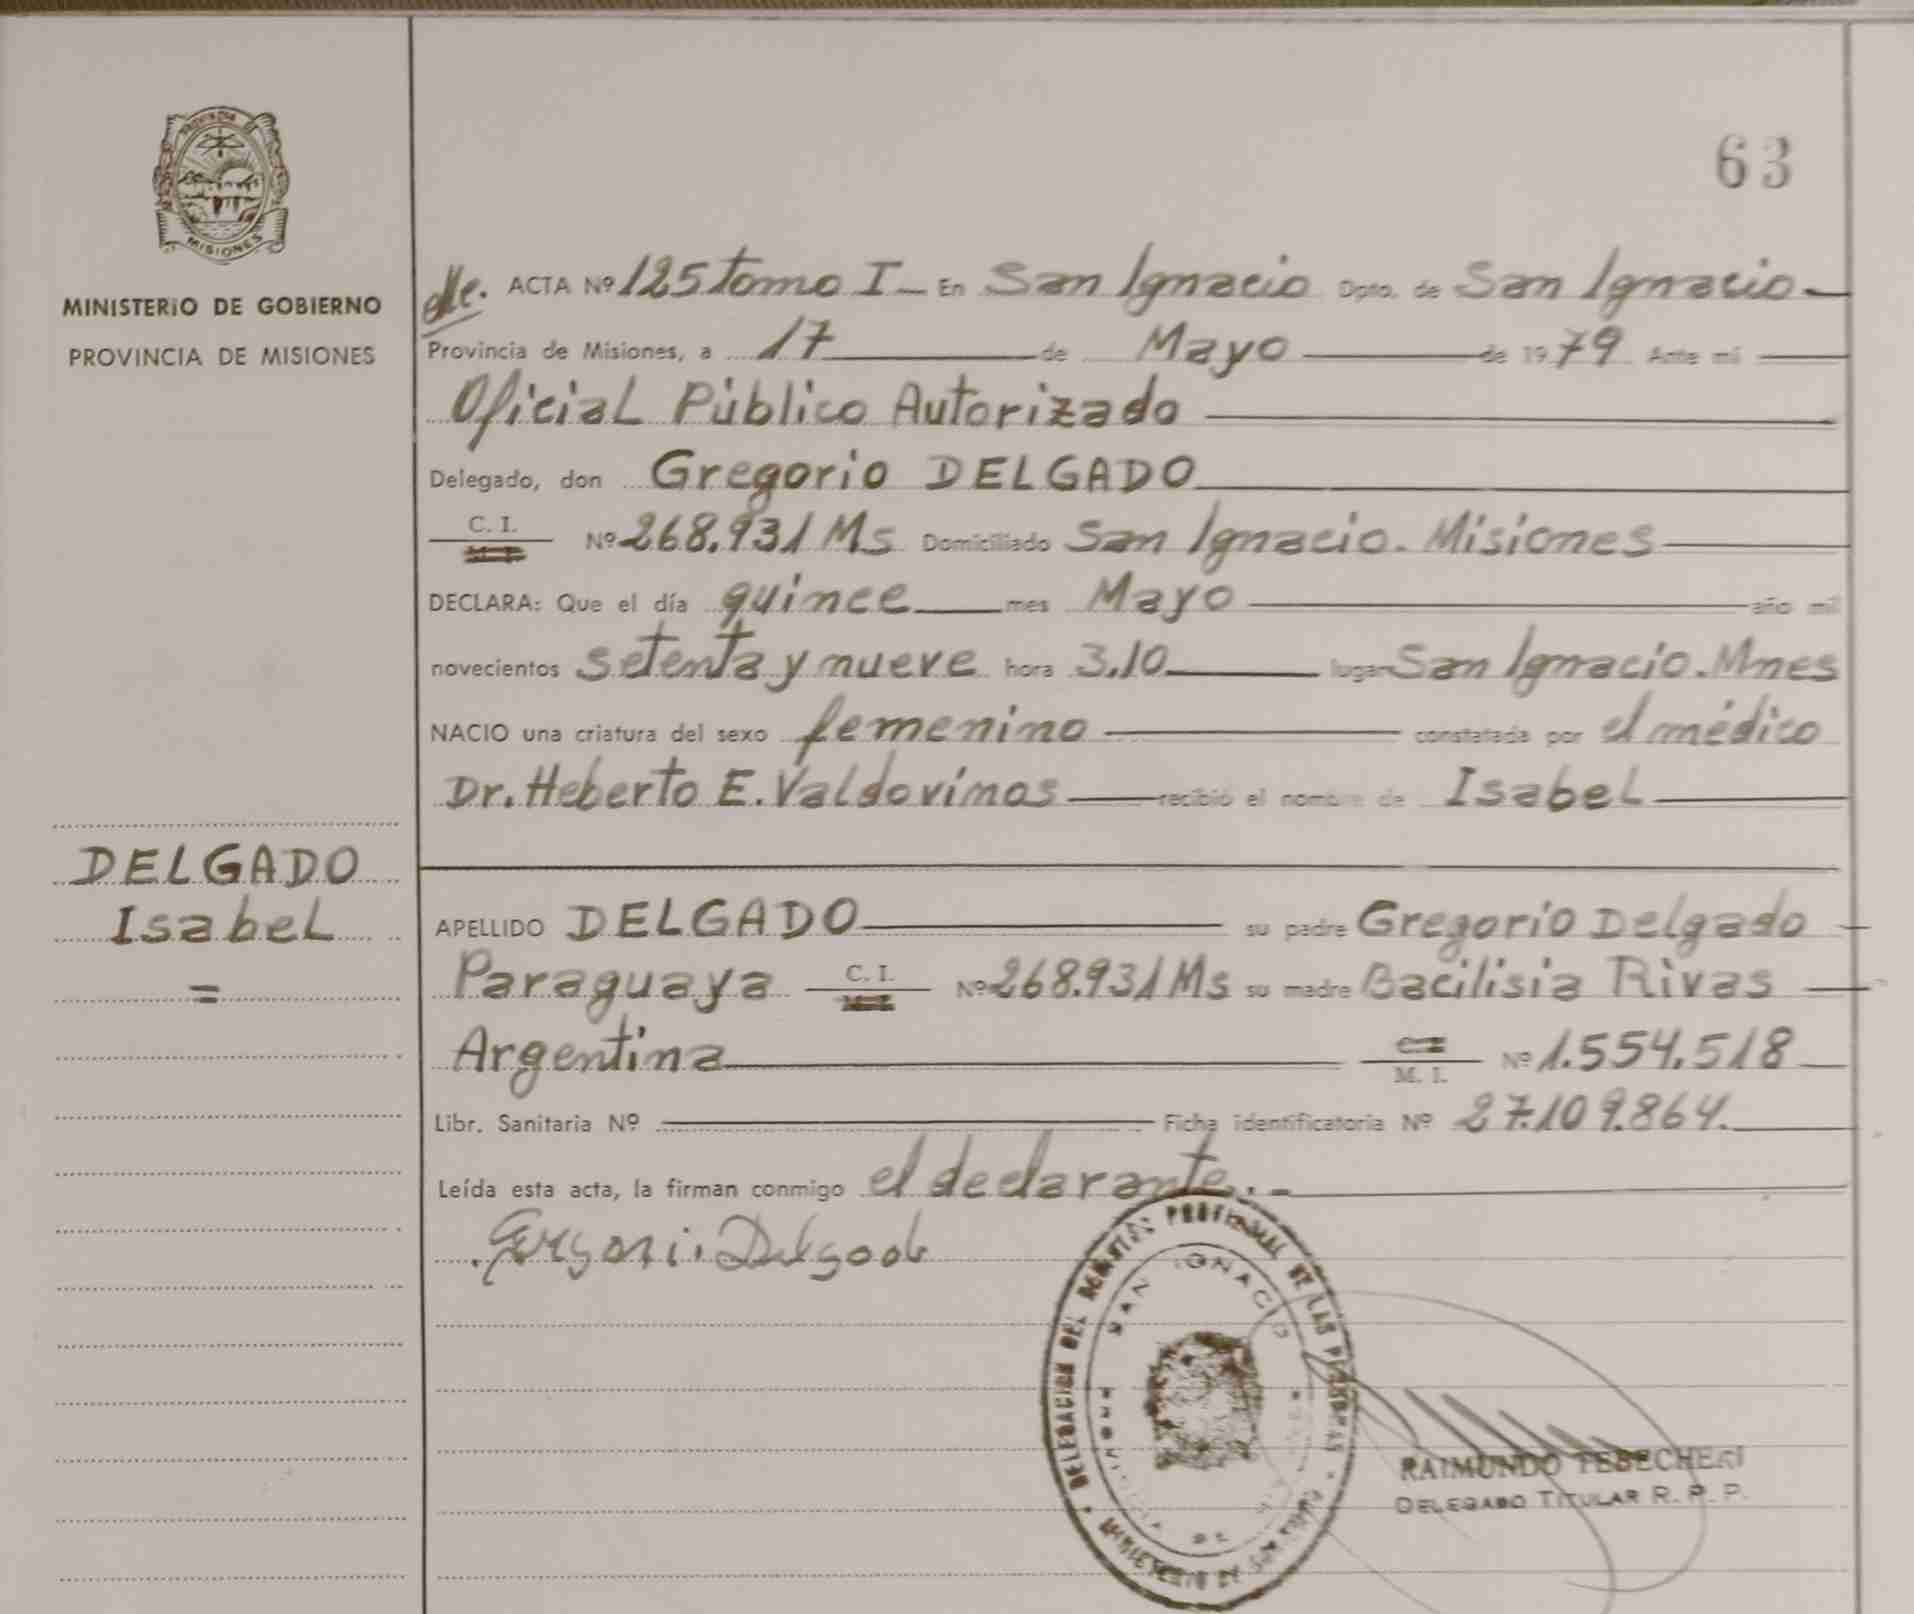 63
MISIONES
MINISTERIO DE GOBIERNO
PROVINCIA DE MISIONES
DELGADO
Isabel
=
ACTA Nº 125 tomo I - En San Ignacio Dpto. de San Ignacio
Provincia de Misiones, a 17 de Mayo de 1979 Ante mi
Oficial Público Autorizado
Delegado, don Gregorio DELGADO
C. I.
M. I. Nº 268.931 Ms Domiciliado San Ignacio. Misiones
DECLARA: Que el día quince mes Mayo año mil
novecientos setenta y nueve hora 3.10 lugar San Ignacio. Mnes
NACIO una criatura del sexo femenino constatada por el médico
Dr. Heberto E. Valdovinos recibió el nombre de Isabel
APELLIDO DELGADO su padre Gregorio Delgado
Paraguaya C. I. M. I. Nº 268.931 Ms su madre Bacilisia Rivas
Argentina C. I. M. I. Nº 1.554.518
Libr. Sanitaria Nº Ficha identificatoria Nº 27.109.864.
Leída esta acta, la firman conmigo el declarante. -
Gregorio Delgado
DELEGACION DEL REGISTRO PROVINCIAL DE LAS PERSONAS
SAN IGNACIO
PROVINCIA DE
MINISTERIO DE GOBIERNO
RAIMUNDO TEBECHERI
DELEGADO TITULAR R. P. P.